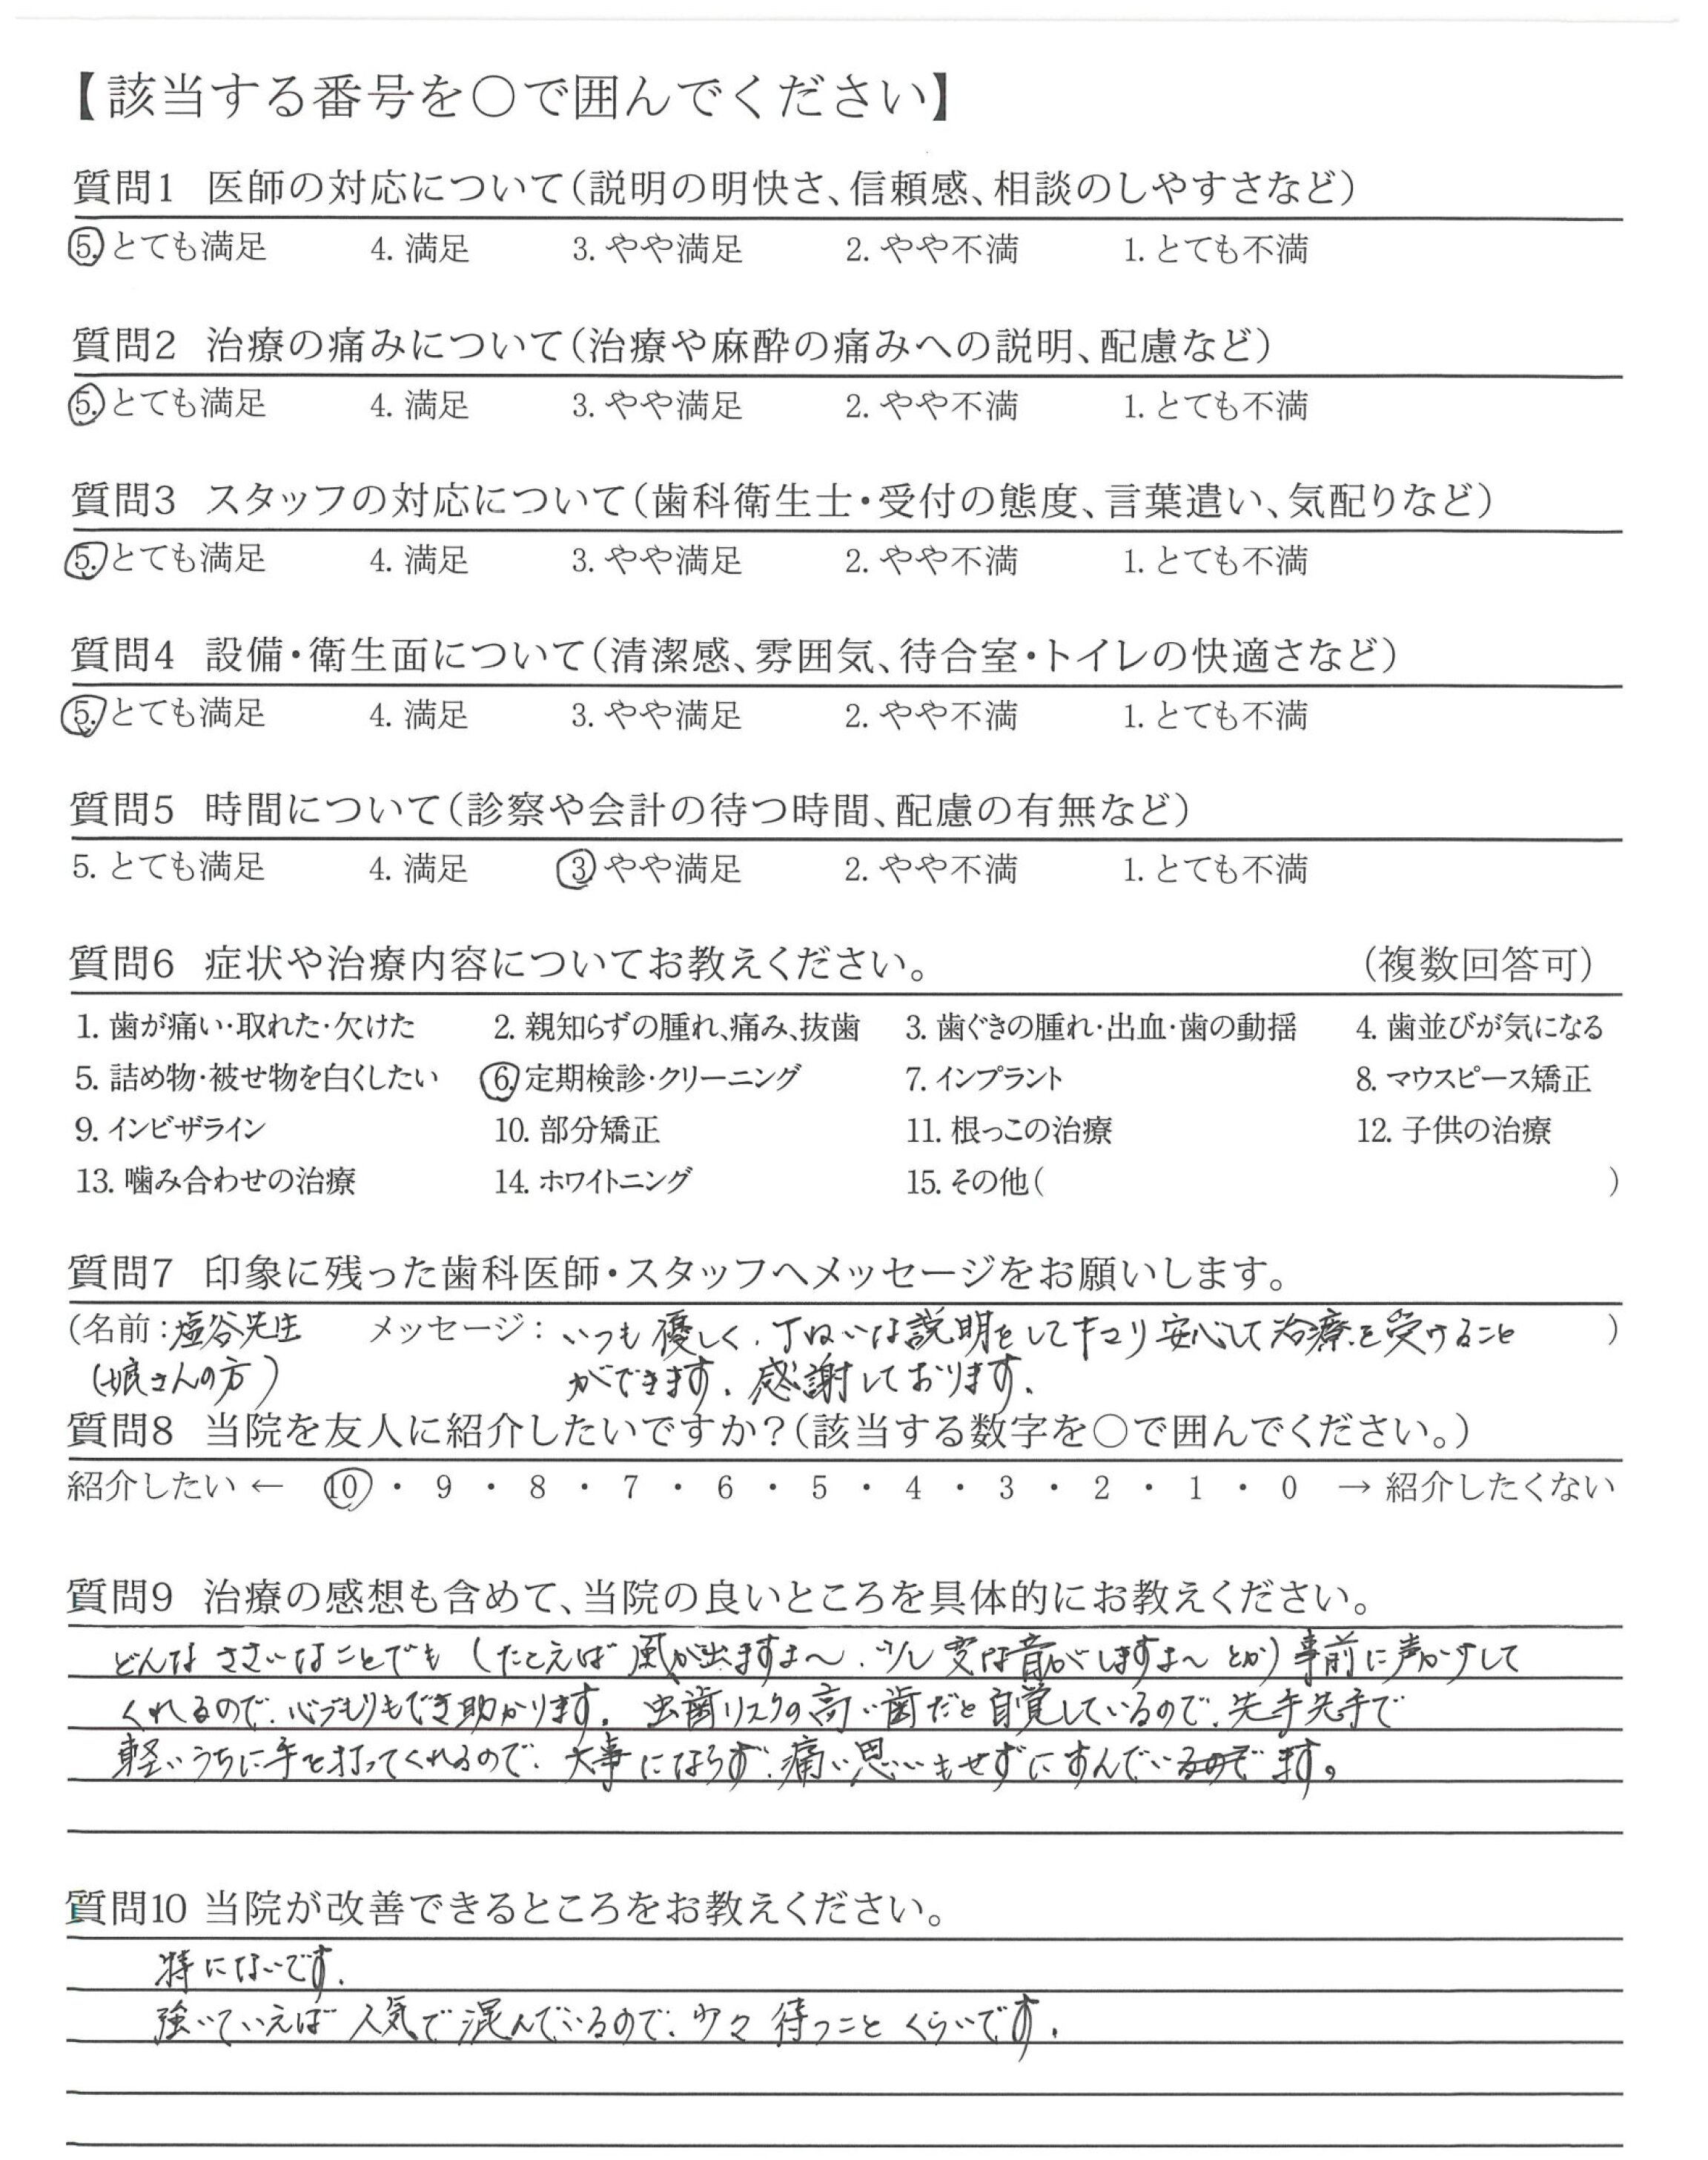 【該当する番号を○で囲んでください】
質問1 医師の対応について(説明の明快さ、信頼感、相談のしやすさなど)
5. とても満足 4. 満足 3. やや満足 2. やや不満 1. とても不満
質問2 治療の痛みについて(治療や麻酔の痛みへの説明、配慮など)
5. とても満足 4. 満足 3. やや満足 2. やや不満 1. とても不満
質問3 スタッフの対応について(歯科衛生士・受付の態度、言葉遣い、気配りなど)
5. とても満足 4. 満足 3. やや満足 2. やや不満 1. とても不満
質問4 設備・衛生面について(清潔感、雰囲気、待合室・トイレの快適さなど)
5. とても満足 4. 満足 3. やや満足 2. やや不満 1. とても不満
質問5 時間について(診察や会計の待つ時間、配慮の有無など)
5. とても満足 4. 満足 3. やや満足 2. やや不満 1. とても不満
質問6 症状や治療内容についてお教えください。 (複数回答可)
1. 歯が痛い・取れた・欠けた 2. 親知らずの腫れ、痛み、抜歯 3. 歯ぐきの腫れ・出血・歯の動揺 4. 歯並びが気になる
5. 詰め物・被せ物を白くしたい 6. 定期検診・クリーニング 7. インプラント 8. マウスピース矯正
9. インビザライン 10. 部分矯正 11. 根っこの治療 12. 子供の治療
13. 噛み合わせの治療 14. ホワイトニング 15. その他( )
質問7 印象に残った歯科医師・スタッフへメッセージをお願いします。
(名前:塩谷先生 メッセージ: いつも優しく、丁ねいな説明をして下さり安心して治療を受けること )
(娘さんの方) ができます。感謝しております。
質問8 当院を友人に紹介したいですか?(該当する数字を○で囲んでください。)
紹介したい ← 10 ・ 9 ・ 8 ・ 7 ・ 6 ・ 5 ・ 4 ・ 3 ・ 2 ・ 1 ・ 0 → 紹介したくない
質問9 治療の感想も含めて、当院の良いところを具体的にお教えください。
どんな ささいなことでも (たとえば 風が出ますよ〜、少し変な音がしますよ〜 とか) 事前に声かけして
くれるので、心づもりもでき助かります。虫歯リスクの高い歯だと自覚しているので、先手先手で
軽いうちに手を打ってくれるので、大事にならず、痛い思いもせずにすんでいます。
質問10 当院が改善できるところをお教えください。
特にないです。
強いていえば 人気で混んでいるので、少々 待つこと くらいです。